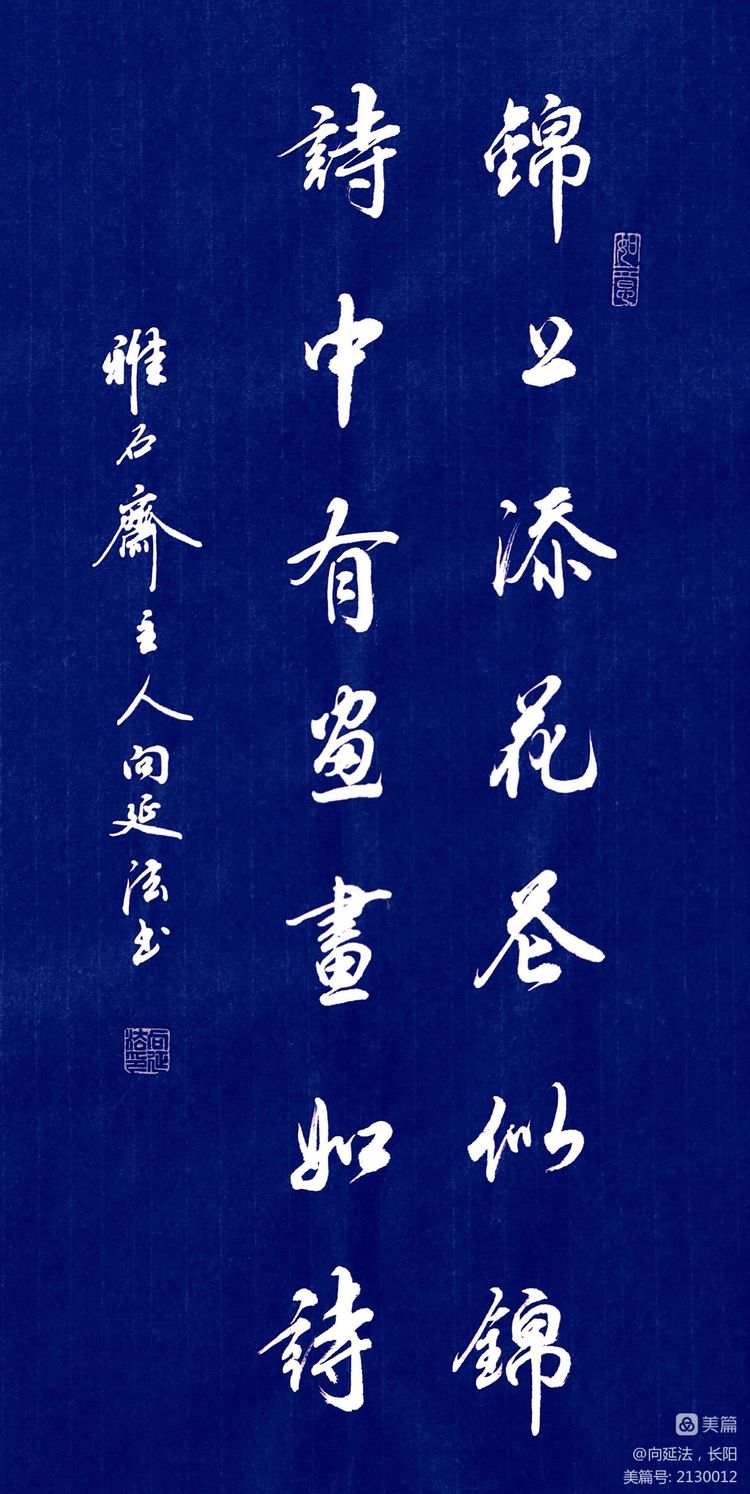 錦上添花花似錦
詩中有畫畫如詩
雅石齋主人向延法书
如意
向延法印
美篇
@向延法，长阳
美篇号: 2130012